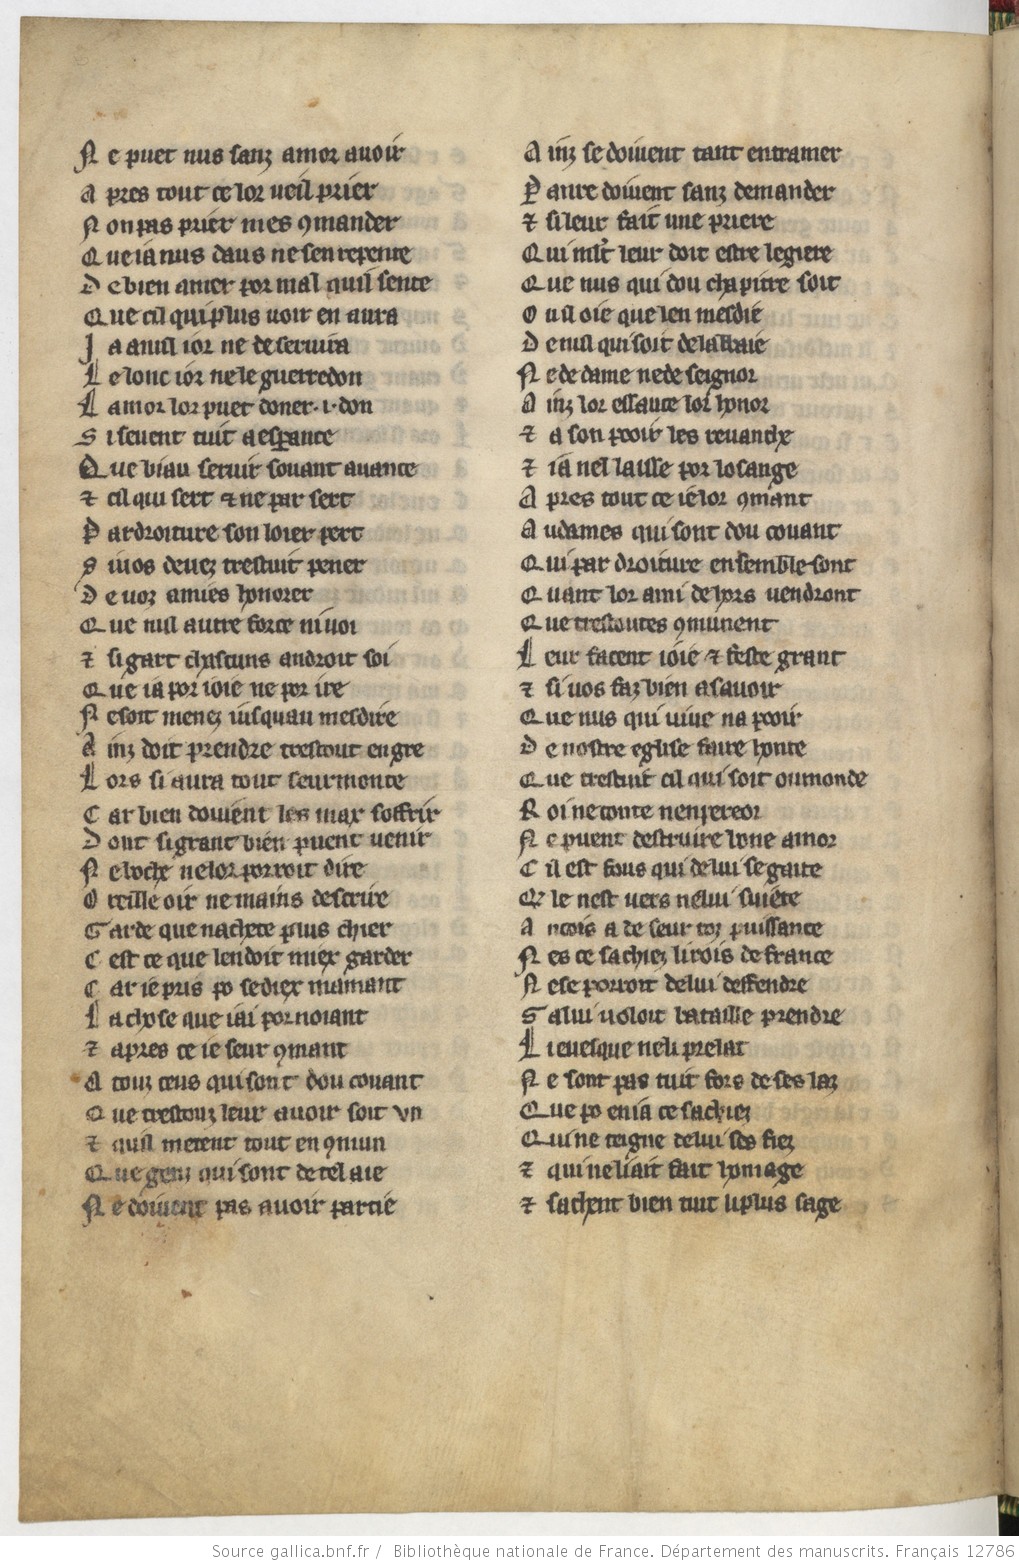 Ne puet nus sanz amor avoir
Apres tout ce lor ueil prier
Non pas prier mes 9mander
Que ia nus daus ne sen repente
De bien amer por mal quil sente
Que cil qui plus uoir en aura
Ja a nisl ior ne deseruira
Le lonc ior ne le guerredon
Lamor lor puet doner .i. don
Si seuent tuit a esperance
Que biau seruir souant auance
⁊ cil qui sert ⁊ ne par sert
Par droiture son loier pert
Si uos deuez trestuit pener
De uoz amies honorer
Que nul autre force ni uoi
⁊ si gart chascuns androit soi
Que ia por ioie ne por ire
Ne soit menez iusquau mesdire
Ainz doit prendre trestout en gre
Lors si aura tout seurmonte
Car bien doiuent les max soffrir
Dont si grant bien puent uenir
Ne boche ne lor porroit dire
Oreille oir ne mains descrire
Garde que nachete plus chier
Cest ce que len doit miex garder
Car ie pris po se diex mamant
La chose que iai por noiant
⁊ apres ce ie seur 9mant
A touz ceus qui sont dou couant
Que trestouz leur auoir soit vn
⁊ quil metent tout en 9mun
Que genz qui sont de tel aie
Ne doiuent pas auoir partie
Ainz se doiuent tant entramer
Paure doiuent sanz demander
⁊ si leur fait une priere
Qui mlt leur doit estre legiere
Que nus qui dou chapitre soit
Ou il oie que len mesdie
De nul qui soit de labbaie
Ne de dame ne de seignor
Ainz lor essauce lor honor
⁊ a son pooir les reuanche
⁊ ia nel laisse por losange
Apres tout ce ie lor 9mant
Au dames qui sont dou couant
Qui par droiture ensemble sont
Quant lor ami de hors uendront
Que trestoutes 9munent
Leur facent ioie ⁊ feste grant
⁊ si uos faz bien asauoir
Que nus qui uiue na pooir
De nostre eglise faire honte
Que trestuit cil qui soit ou monde
Roi ne conte nenpereor
Ne puent destruire bone amor
Cil est fous qui de lui se gaite
le nest uers nelui suiete
Ancois a de seur toz puissance
Nes ce sachiez li rois de france
Ne se porroit de lui deffendre
Sa lui uoloit bataille prendre
Li euesque ne li prelat
Ne sont pas tuit fors de ses laz
Que po en ia ce sachiez
Qui ne teigne de lui ses fiez
⁊ qui ne li ait fait homage
⁊ sachent bien tuit li plus sage
Source gallica.bnf.fr / Bibliothèque nationale de France. Département des manuscrits. Français 12786